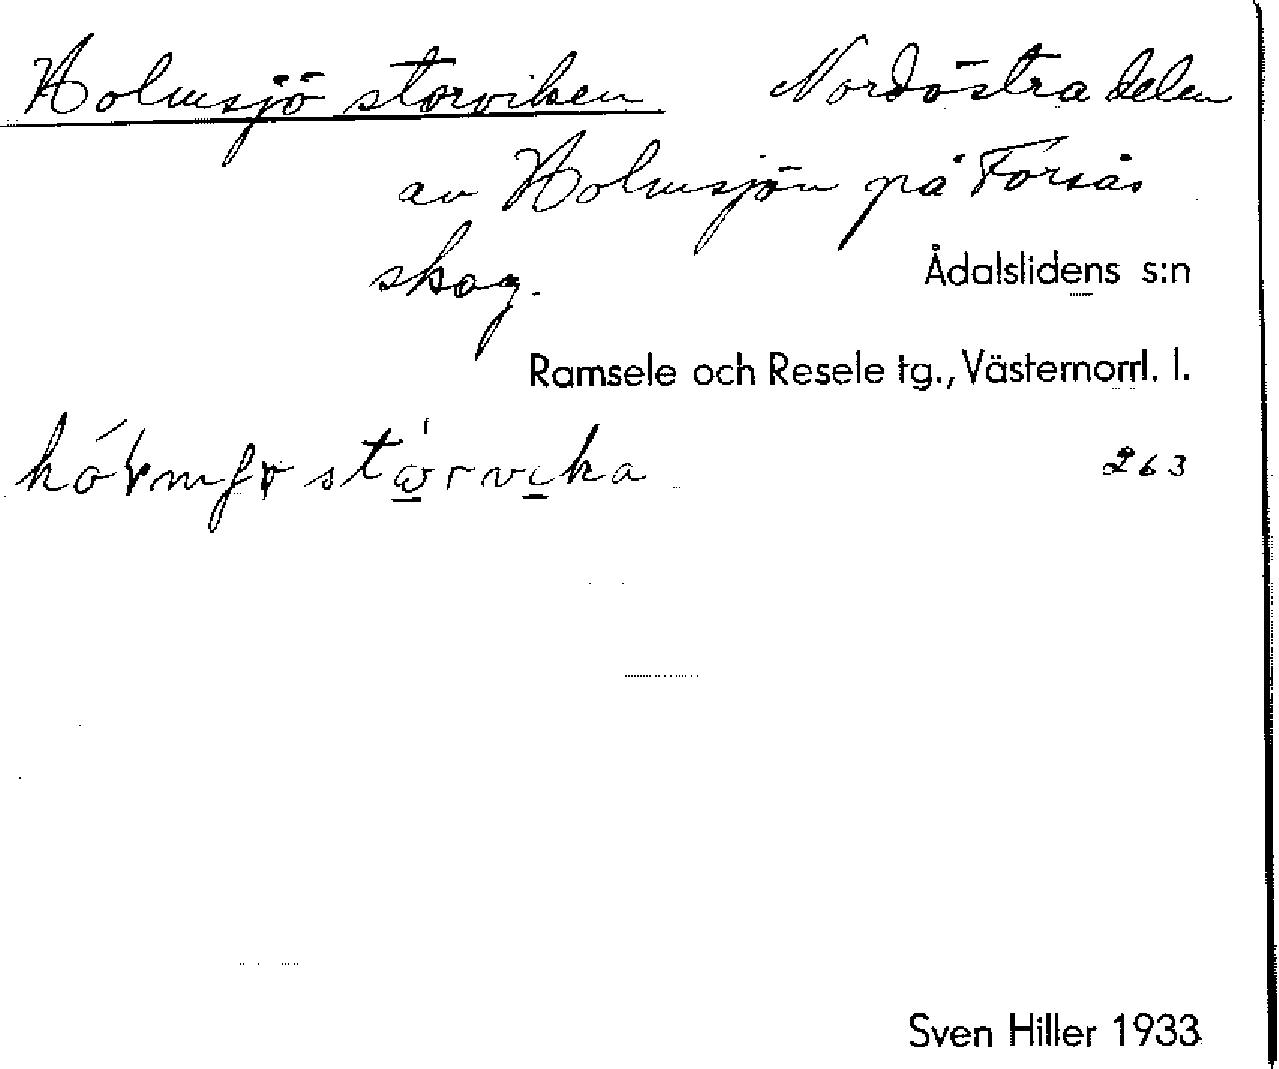 Holmsjö storviken Nordöstra delen
av Holmsjön på Forsås
skog.
Ådalslidens s:n
Ramsele och Resele tg., Västernorrl. l.
263
Sven Hiller 1933